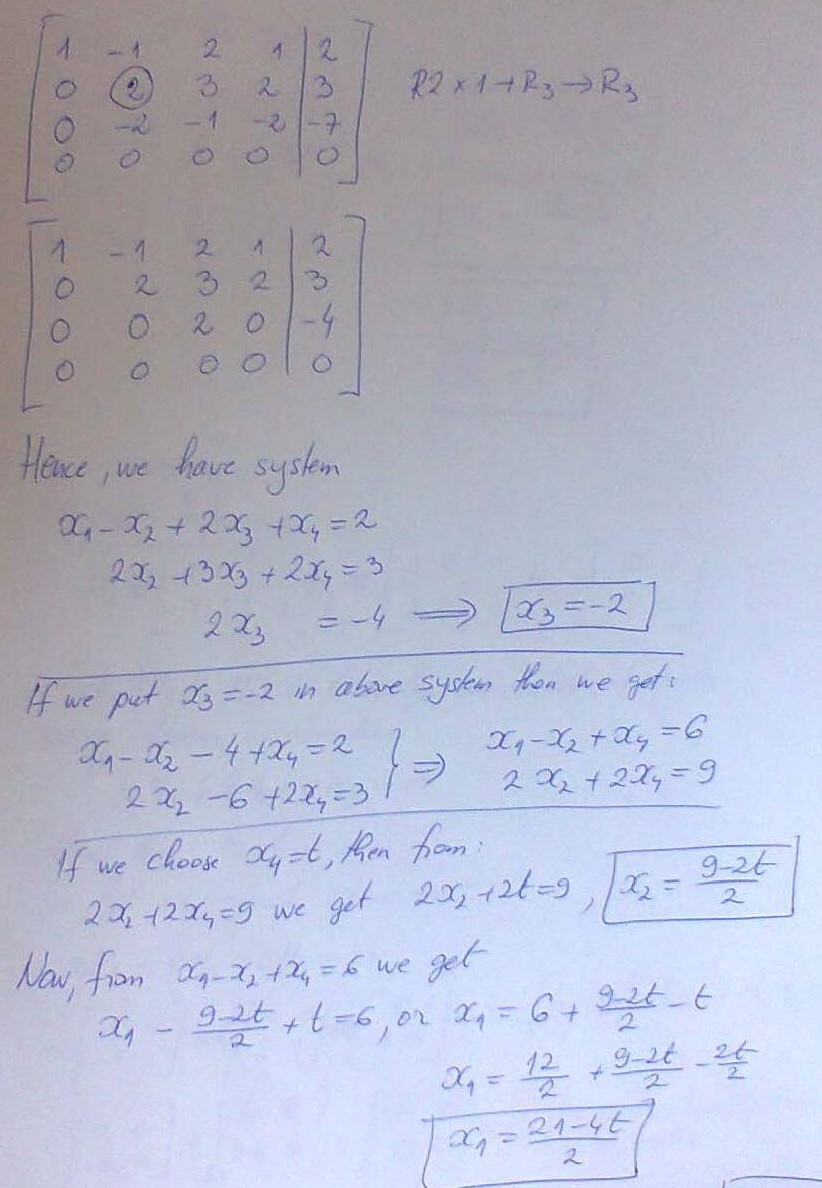 1 -1 2 1 | 2
0 2 3 2 | 3 R2 × 1 + R₃ → R₃
0 -2 -1 -2 | -7
0 0 0 0 | 0
1 -1 2 1 | 2
0 2 3 2 | 3
0 0 2 0 | -4
0 0 0 0 | 0
Hence, we have system
x₁ - x₂ + 2x₃ + x₄ = 2
2x₂ + 3x₃ + 2x₄ = 3
2x₃ = -4 ⟹ x₃ = -2
If we put x₃ = -2 in above system then we get:
x₁ - x₂ - 4 + x₄ = 2 } ⇒ x₁ - x₂ + x₄ = 6
2x₂ - 6 + 2x₄ = 3 2x₂ + 2x₄ = 9
If we choose x₄ = t, then from:
2x₂ + 2x₄ = 9 we get 2x₂ + 2t = 9, x₂ = (9-2t)/2
Now, from x₁ - x₂ + x₄ = 6 we get
x₁ - (9-2t)/2 + t = 6, or x₁ = 6 + (9-2t)/2 - t
x₁ = 12/2 + (9-2t)/2 - 2t/2
x₁ = (21-4t)/2